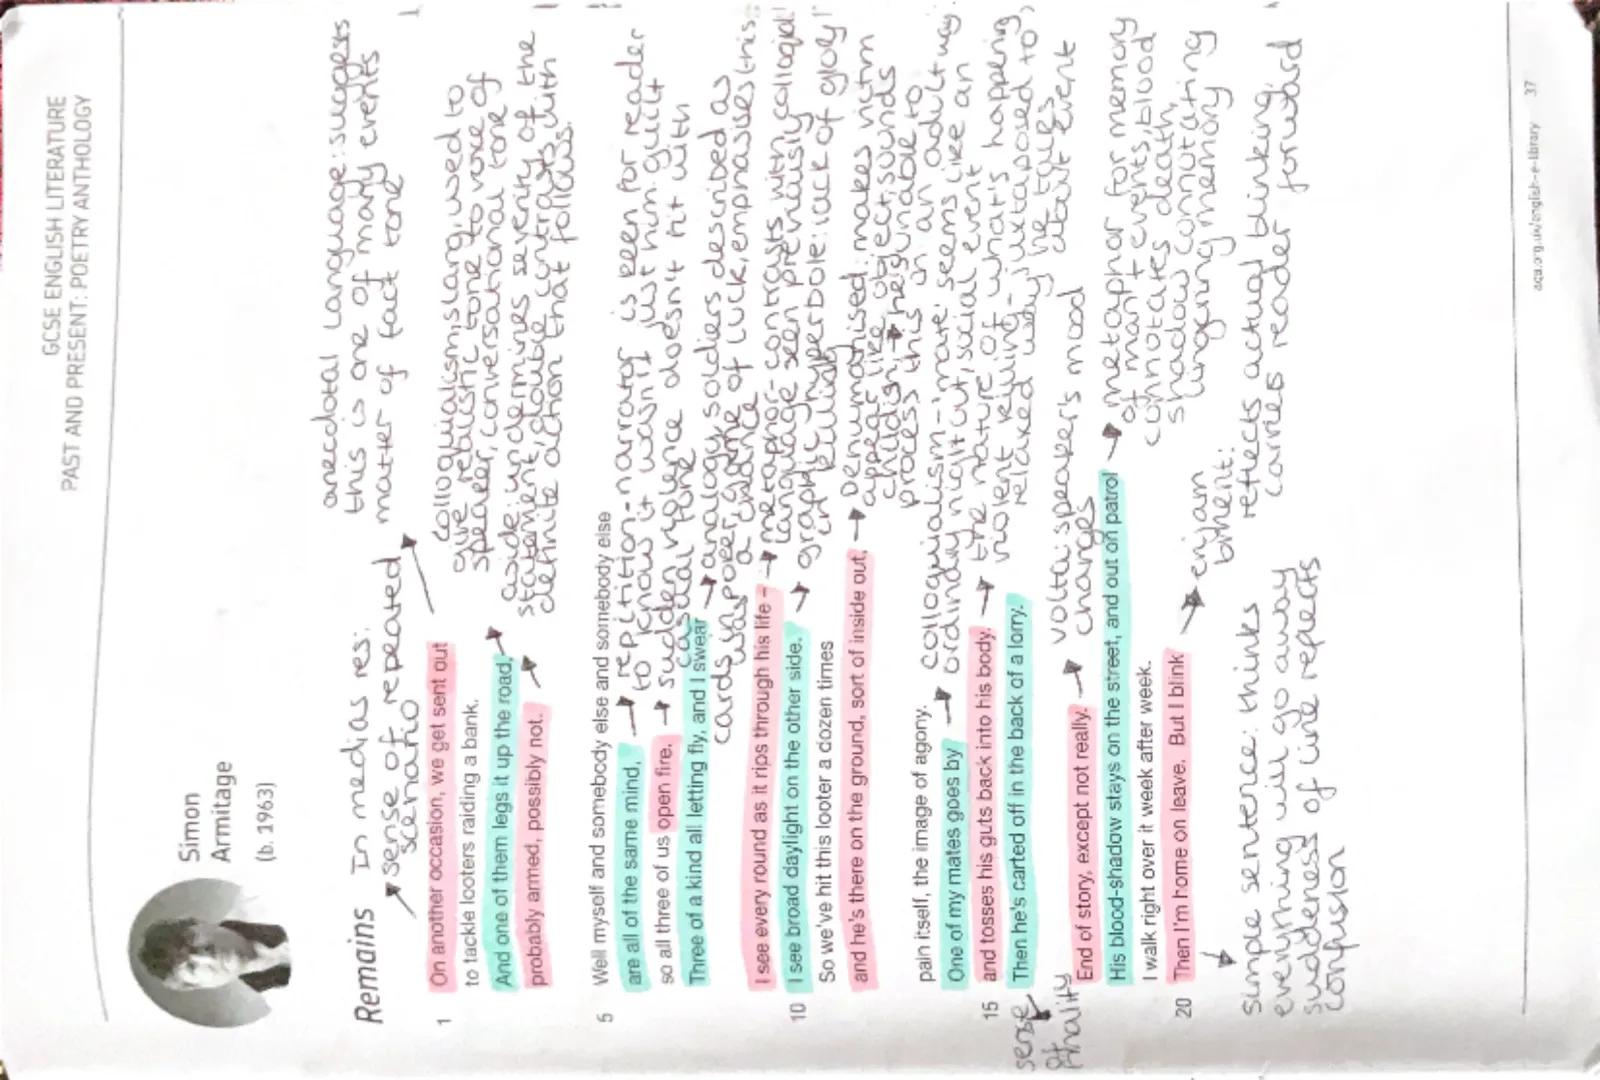 GCSE ENGLISH LITERATURE
PAST AND PRESENT: POETRY ANTHOLOGY
Simon
Armitage
(b. 1963)
Remains
In medias res:
sense of repeated
scenario
anecdotal language: suggests
this is one of many events
matter of fact tone
1 On another occasion, we get sent out
to tackle looters raiding a bank.
And one of them legs it up the road,
probably armed, possibly not.
colloquialism, slang, used to
give realistic tone to voice of
speaker, conversational tone of
aside: undermines severity of the
statement, double contrasts with
definite action that follows.
5 Well myself and somebody else and somebody else
are all of the same mind,
so all three of us open fire.
Three of a kind all letting fly, and I swear
repitition - narrator is keen for reader
to know it wasn't just him: guilt
sudden violence doesn't fit with
casual tone
analogy: soldiers described as
cards in poker game of luck, emphasies this
was a chance
I see every round as it rips through his life –
10 I see broad daylight on the other side.
So we've hit this looter a dozen times
and he's there on the ground, sort of inside out,
metaphor - contrasts with colloqial
language seen previously
graphic hyperbole: lack of gloy!
in killing
Dehumanised: makes victim
appear like object: sounds
childish → he is unable to
process this in an adult way
pain itself, the image of agony.
One of my mates goes by
15 and tosses his guts back into his body.
Then he's carted off in the back of a lorry.
colloquialism - 'mate' seems like an
ordinary night out, social event
the nature of what's happening,
violent killing - juxtaposed to
relaxed way he talks
about event
sense
of
fatality
End of story, except not really.
volta: speaker's mood
changes
His blood-shadow stays on the street, and out on patrol
I walk right over it week after week.
20 Then I'm home on leave. But I blink
metaphor for memory
of mant events, blood
connotates death,
shadow connotating
lingering memory
enjam
bment:
reflects actual blinking,
carries reader forward
simple sentence: thinks
everything will go away
suddeness of line replects
confusion
aqa.org.uk/english-e-library 37